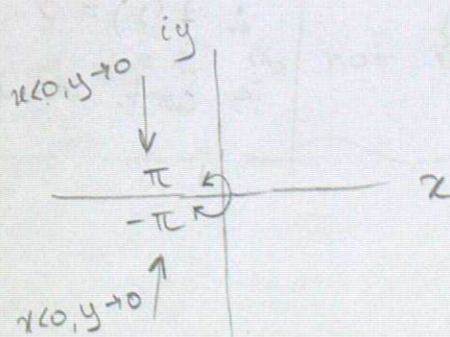 iy
x<0, y→0
π
x
-π
x<0, y→0